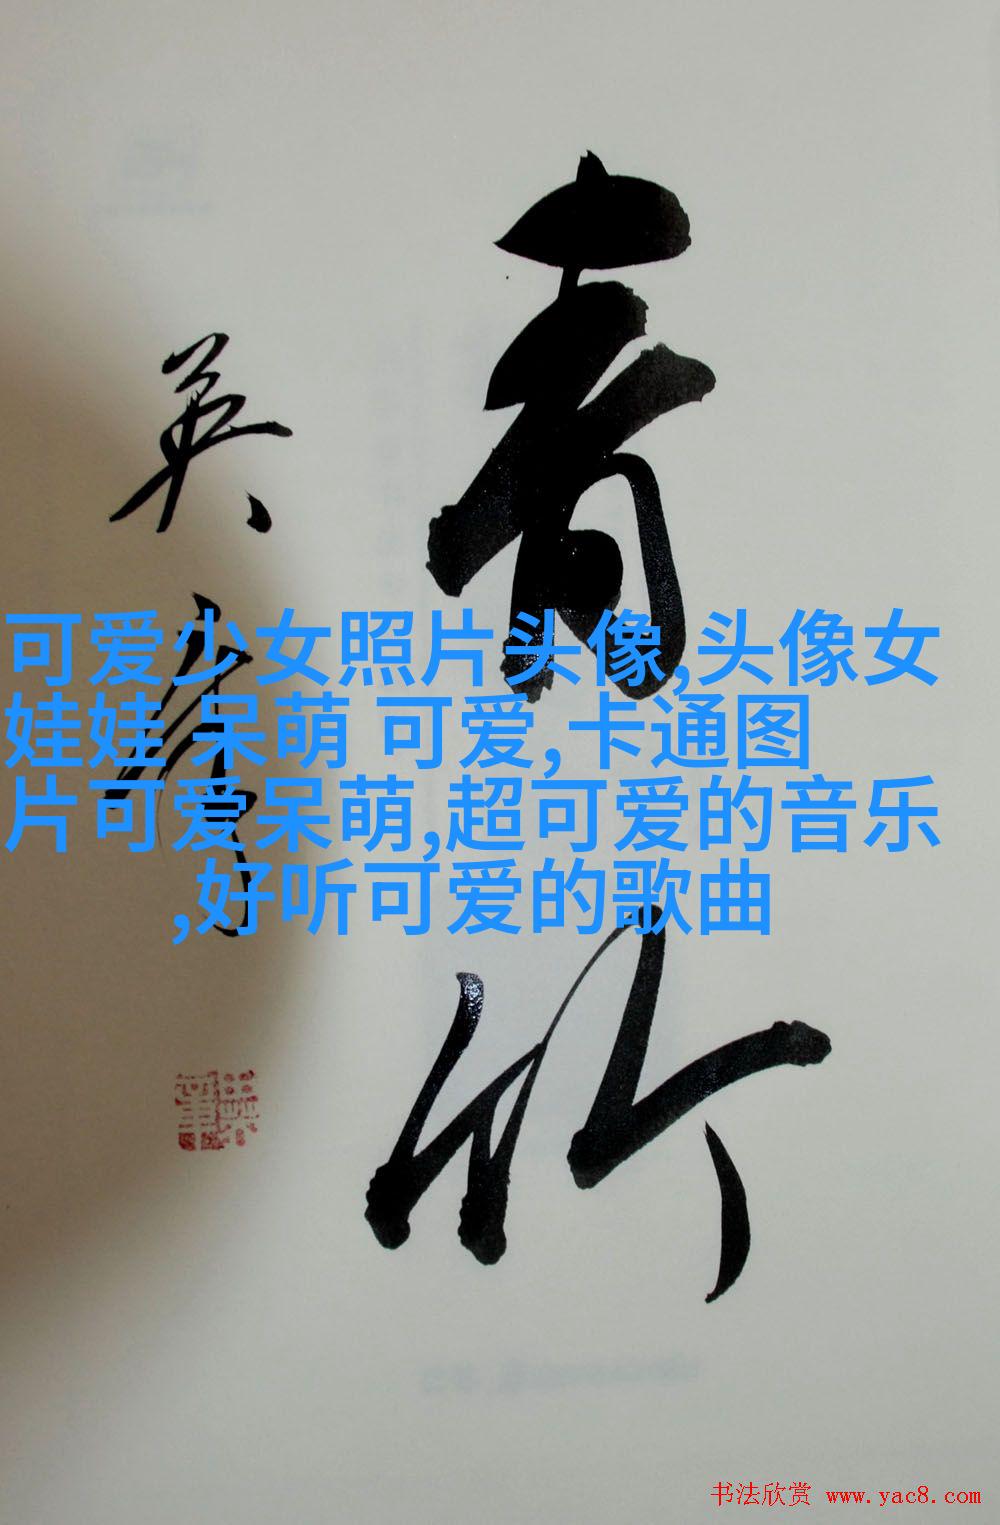 青竹
英彦
可爱少女照片头像,头像女
娃娃 呆萌 可爱,卡通图
片可爱呆萌,超可爱的音乐
,好听可爱的歌曲
书法欣赏 www.yac8.com